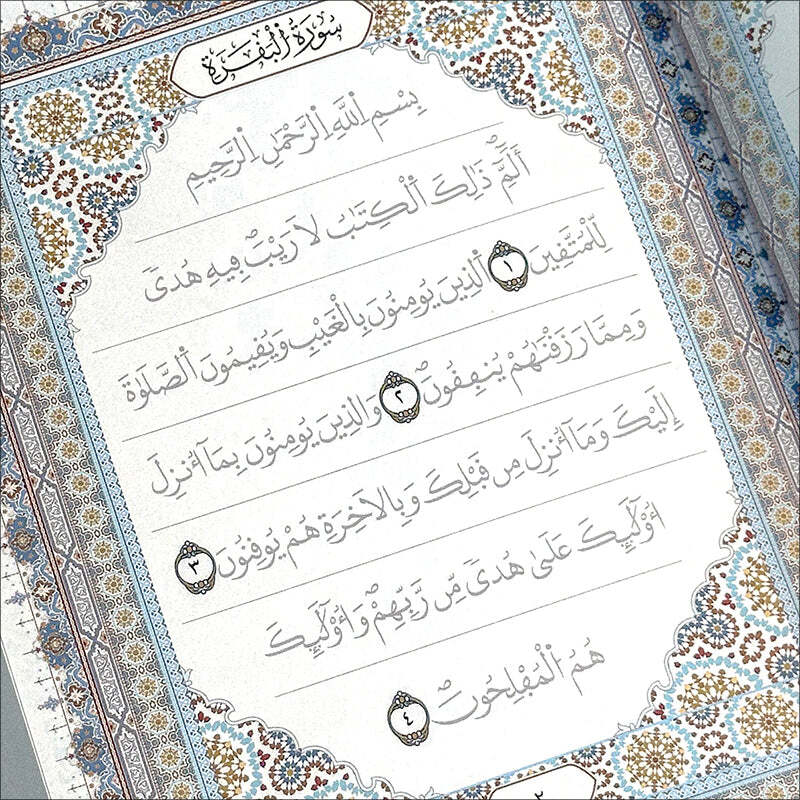 سُورَةُ الْبَقَرَةِ
بِسْمِ اِللَّهِ اِلرَّحْمَٰنِ اِلرَّحِيمِ
أَلَٓمِّٓۖ ذَٰلِكَ اَلْكِتَٰبُ لَا رَيْبَۖ فِيهِ هُدىً
لِّلْمُتَّقِينَ ١ اَلذِينَ يُومِنُونَ بِالْغَيْبِ وَيُقِيمُونَ اَلصَّلَوٰةَ
وَمِمَّا رَزَقْنَٰهُمْ يُنفِقُونَۖ ٢ وَالذِينَ يُومِنُونَ بِمَآ أُنزِلَ
إِلَيْكَ وَمَآ أُنزِلَ مِن قَبْلِكَ وَبِالَاخِرَةِ هُمْ يُوقِنُونَ ٣
أُوْلَٰٓئِكَ عَلَىٰ هُدىً مِّن رَّبِّهِمْۖ وَأُوْلَٰٓئِكَ
هُمُ اُلْمُفْلِحُونَۖ ٤
٢